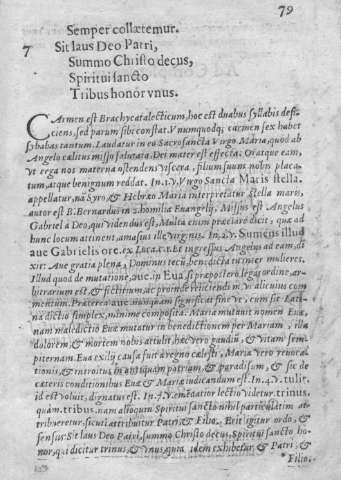 79
Semper collætemur.
7 Sit laus Deo Patri,
Summo Christo decus,
Spiritui sancto
Tribus honor vnus.
CArmen est Brachycatalecticum, hoc est duabus syllabis defi-
ciens, sed parum sibi constat. Vnumquodq; carmen sex habet
sylabas tantum. Laudatur in eo Sacrosancta Virgo Maria, quod ab
Angelo cœlitus misso salutata, Dei mater est effecta. Oratque eam,
vt erga nos materna ostendens viscera, filium suum nobis placa-
tum, atque benignum reddat. In .1. V. Virgo Sancta Maris stella.
appellatur, nā Syro, & Hebræo Maria interpretatur stella maris,
autor est B. Bernardus in 2. homilia Euangelij. Missus est Angelus
Gabriel a Deo, qui videndus est, Multa enim præclare dicit, quæ ad
hunc locum attinent, amasius ille virginis. In .2. V. Sumens illud
aue Gabrielis ore. ex Luca. 1. Et ingressus Angelus ad eam, di-
xit: Aue gratia plena, Dominus tecū, benedicta tu inter mulieres.
Illud quod de mutatione, aue, in Eua si præpostero legas ordine, ar-
bitrarium est, & fictitium, ac proinde reiiciendū in vt alicuius com
mentum. Præterea aue nunquam significat sine vę, cum sit Lati-
na dictio simplex, minime composita. Maria mutauit nomen Euæ,
nam maledictio Euæ mutatur in benedictionem per Mariam, illa
dolorem, & mortem nobis attulit, hæc vero gaudiū, & vitam sem-
piternam. Eua exilij causa fuit a regno cælesti, Maria vero reuoca-
tionis, & introitus in antiquam patriam, & paradisum, & sic de
cæteris conditionibus Euæ, & Mariæ iudicandum est. In .4. V. tulit.
id est voluit, dignatus est. In .7. V. emēdatior lectio videtur. trinus.
quàm. tribus. nam alioquin Spiritui sancto nihil particulatim at-
tribueretur, sicuti attribuitur Patri, & Filio. Erit igitur ordo, &
sensus. Sit laus Deo Patri, summo Christo decus, Spiritui sancto ho-
nor, qui dicitur trinus, & vnus, quia idem exhibetur, & Patri, &
Filio.